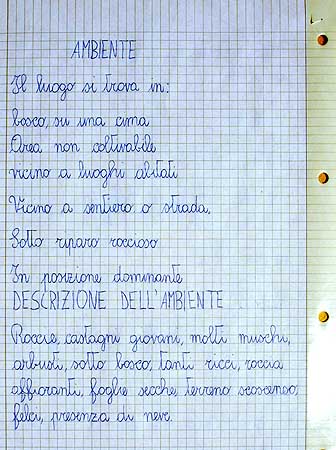 AMBIENTE
Il luogo si trova in:
bosco, su una cima
Area non coltivabile
vicino a luoghi abitati
Vicino a sentiero o strada.
Sotto riparo roccioso
In posizione dominante
DESCRIZIONE DELL'AMBIENTE
Roccie, castagni giovani, molti muschi,
arbusti, sotto bosco, tanti ricci, roccia
affioranti, foglie secche, terreno scosceso,
felci, presenza di neve.